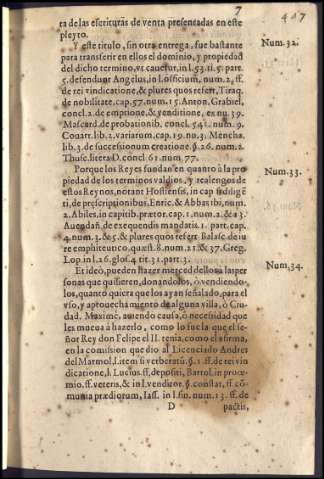 7
417
ra de las escrituras de venta presentadas en este
pleyto.
Y este titulo, sin otra entrega, fue bastante
Num.32.
para transferir en ellos el dominio, y propiedad
del dicho termino, vt cauetur, in l.53. tí. 5. part.
5. defendunt Angelus, in l. officium, num. 2, ff.
de rei vindicatione, & plures quos refert, Tiraq.
de nobilitate, cap. 57. num. 15. Anton. Grabiel,
concl. 2. de emptione, & venditione, ex nu. 39.
Mascard. de probationib. concl. 541. num. 9.
Couarr. lib. 2. variarum, cap. 19. nu. 3. Mencha.
lib. 3. de successionum creatione, §. 26. num. 2.
Thusc. litera D. concl. 61. num 77.
Porque los Reyes fundan en quanto à la pro
Num.33.
piedad de los terminos valdios, y realengos de
estos Reynos, notant Hostiensis, in cap
ti, de præscriptionibus, Enric. & Abbas ibi, num.
2. Abiles, in capitib. prætor. cap. 1. num. 2. & 3.
Auendañ. de exequendis mandatis 1. part. cap.
4. num. 3. & 5. & plures quos refert Balasc. de iu
re emphiteutico, quæst. 8. num. 21. & 37. Greg.
Lop. in l. 26. glos. 4. tit. 31. part. 3.
Et ideò, pueden hazer merced dellos à las per
Num.34.
sonas que quisieren, donandolos, ò vendiendo-
los, quanto quiera que los ayan señalado, para el
vso, y aprouechamiento de alguna villa, ò Ciu-
dad. Maximè, auiendo causa, ò necesidad que
les mueua à hazerlo, como lo fue la que el se-
ñor Rey don Felipe el II. tenia, como el afirma,
en la comission que dio al Licenciado Andres
del Marmol, l. item si verberatũ, §. 1. ff. de rei vin
dicatione, l. Lucius. ff. depositi, Bartol. in proœ-
mio. ff. veteris, & in l. venditor. §. constat, ff. cō-
munia prædiorum, Iass. in l. fin. num. 13. ff. de
D
pactis,